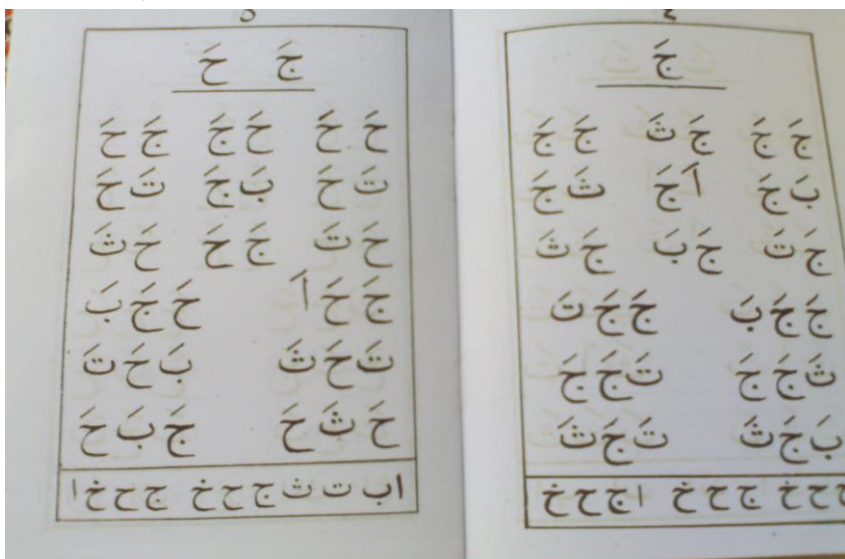 ٤
جَ
جَ جَ جَ ثَ جَ جَ
بَ جَ اَ جَ ثَ جَ
جَ تَ جَ بَ جَ ثَ
جَ جَ بَ جَ جَ تَ
ثَ جَ جَ تَ جَ جَ
بَ جَ ثَ تَ جَ ثَ
ج ح خ ج ح خ ا ج ح خ
٥
جَ حَ
حَ حَ حَ جَ جَ حَ
تَ حَ بَ جَ تَ حَ
حَ تَ جَ حَ حَ ثَ
جَ حَ اَ حَ جَ بَ
تَ حَ ثَ بَ حَ تَ
حَ ثَ حَ جَ بَ حَ
ا ب ت ث ج ح خ ج ح خ ا